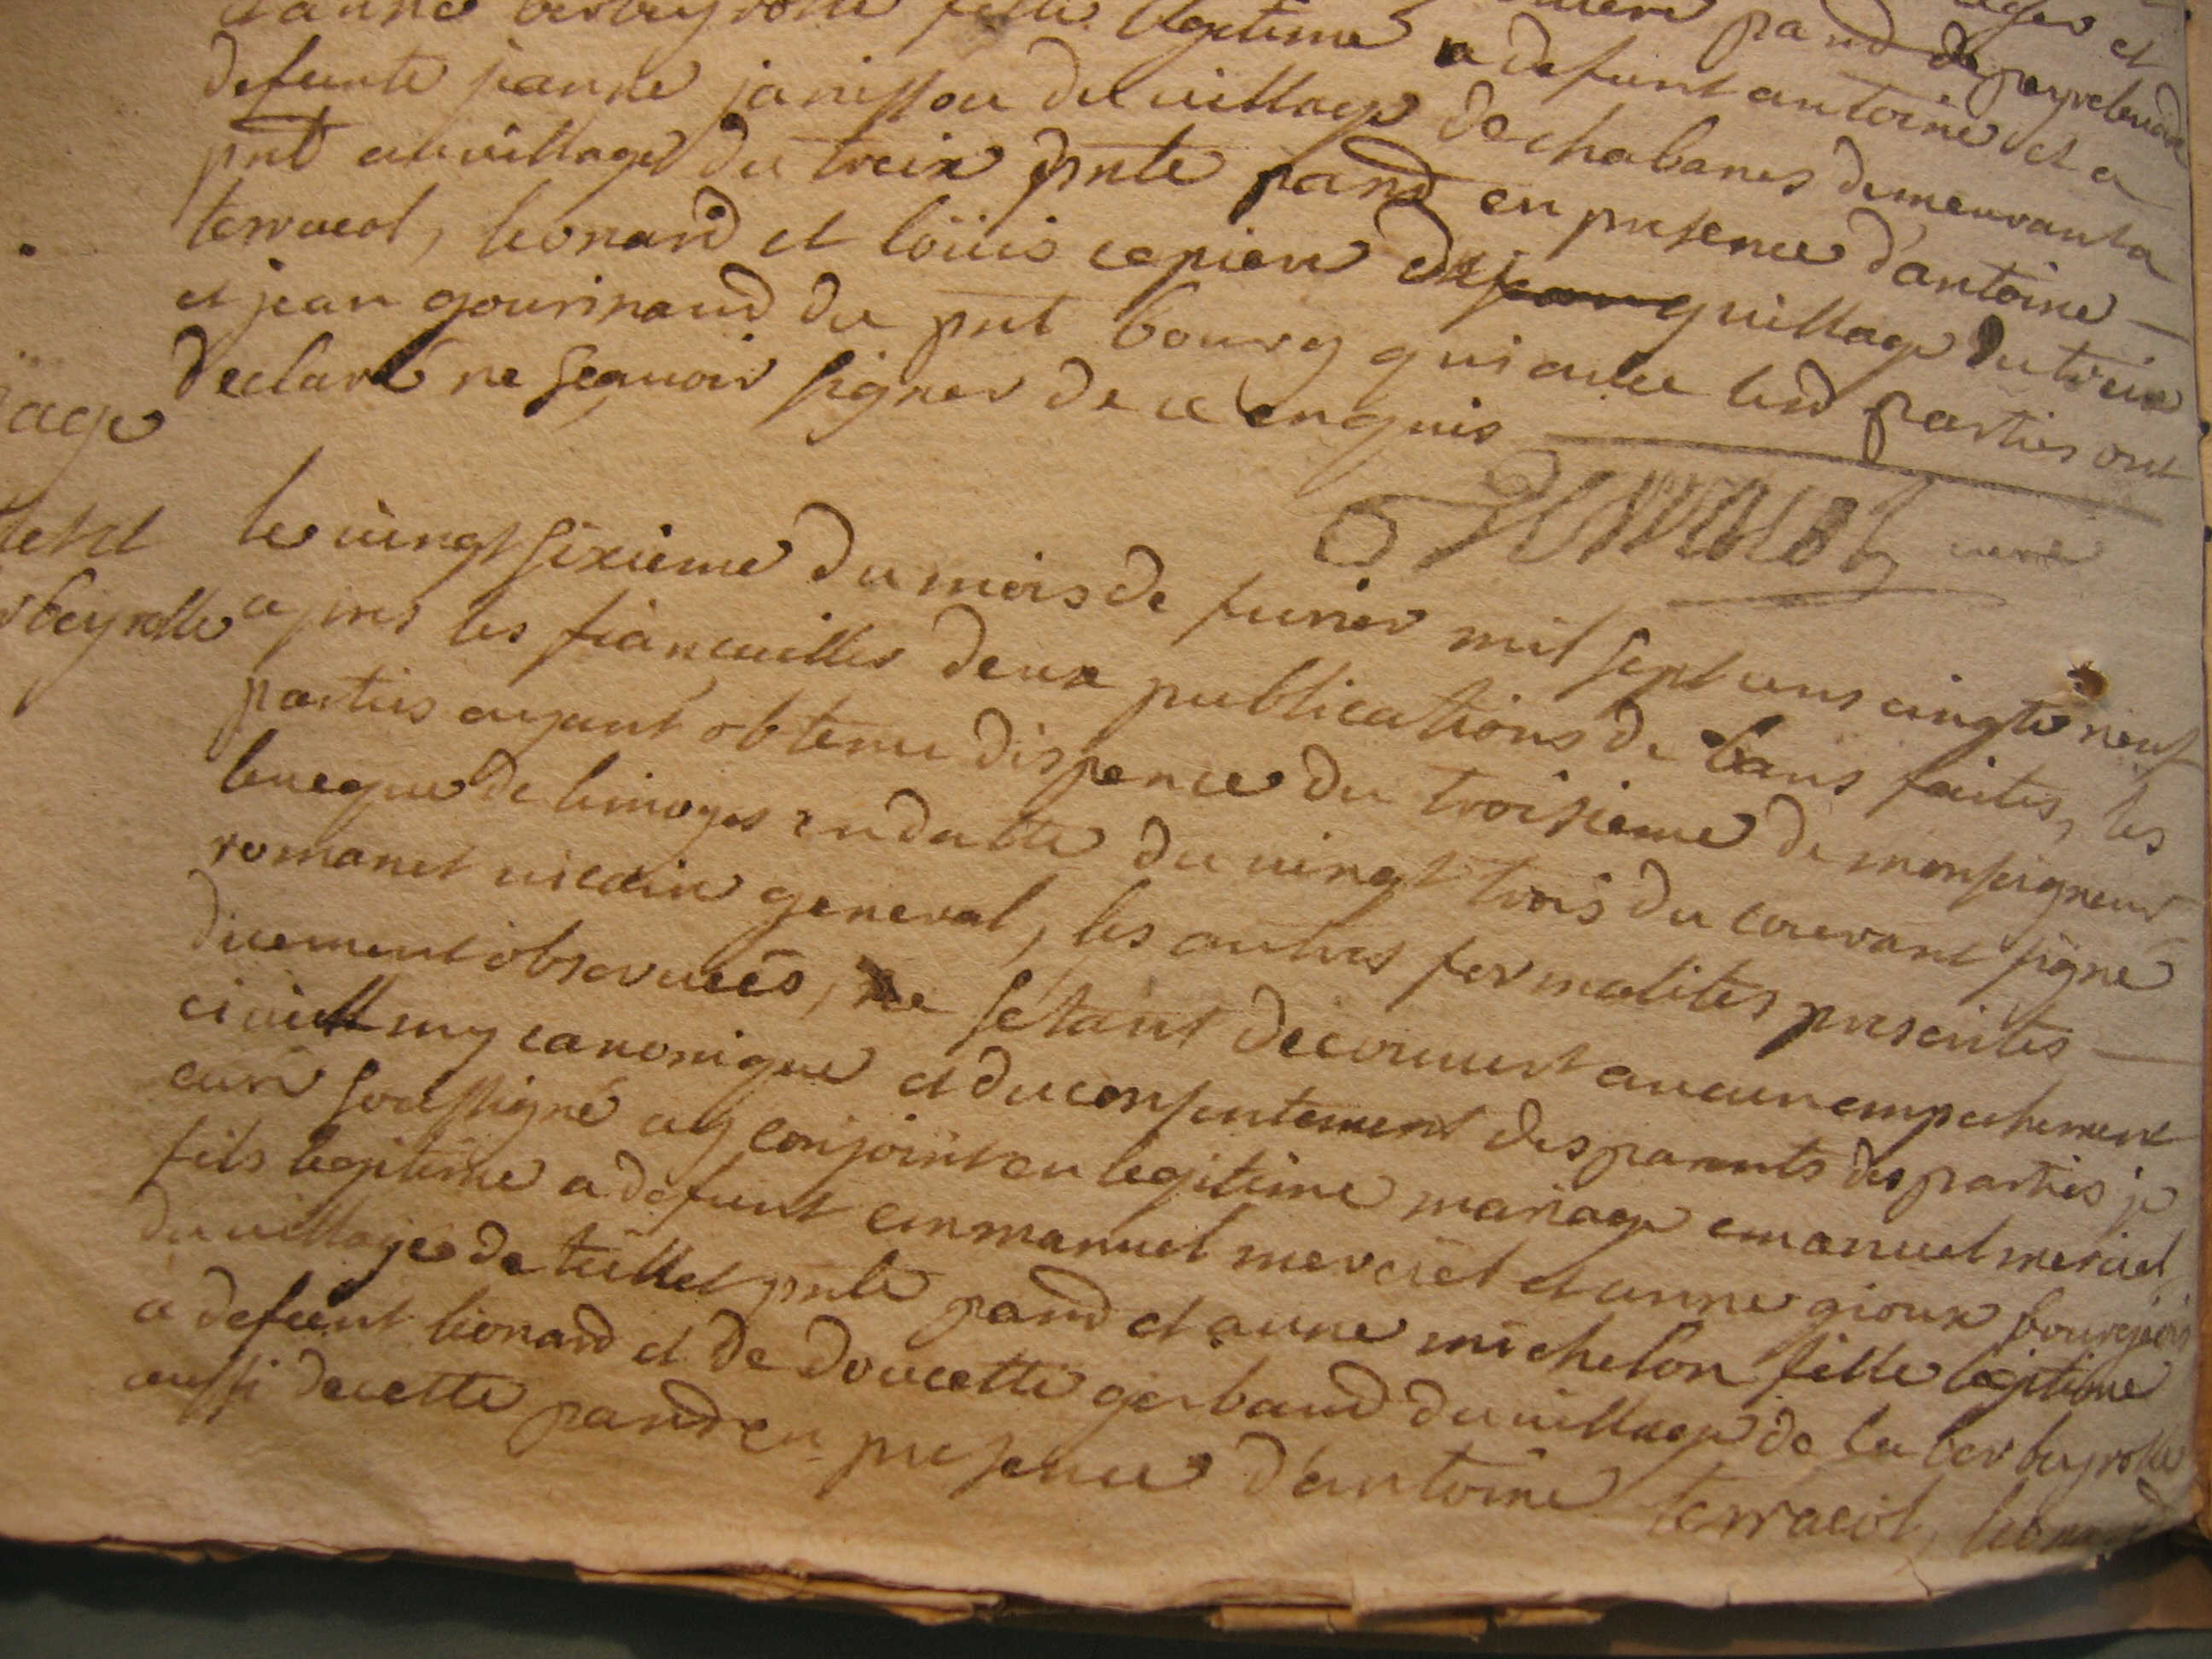 et anne berbeyrolle fille legitime a defunt antoine et a
defunte jeanne janissou du village de chabanes demeurant a
pnt au village du treix pnte parr en presence d'antoine
terracol, leonard et löuis cepiere du village du treix
et jean gourinaud du pnt bourg qui avec lesd parties ont
declaré ne sçavoir signer de ce enquis
curé
age
le vingt sixieme du mois de fevrier mil sept cens cinqte neuf
beyrolle
apres les fiancailles deux publications de bans faites, les
parties ayant obtenu dispence du troisieme de monseigneur
leveque de limoges en datte du vingt trois du courant signé
romanet vicaire general, les autres formalités prescrites
duement observées, ne setant decouvert aucun empechement
civil ny canonique et du consentement des parents des parties je
curé soussigné ay conjoint en legitime mariage emanuel merciel
fils legitime a defunt emmanuel merciel et anne gioux bourgeois
du village de teillet pnte parr et anne michelon fille legitime
a defunt leonard et de doucette gerbaud du village de la berbeyrolle
aussi de cette parr en presence d'antoine terracol, leonard